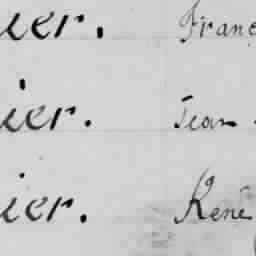 ier. Franç
ier. Jean
ier. René